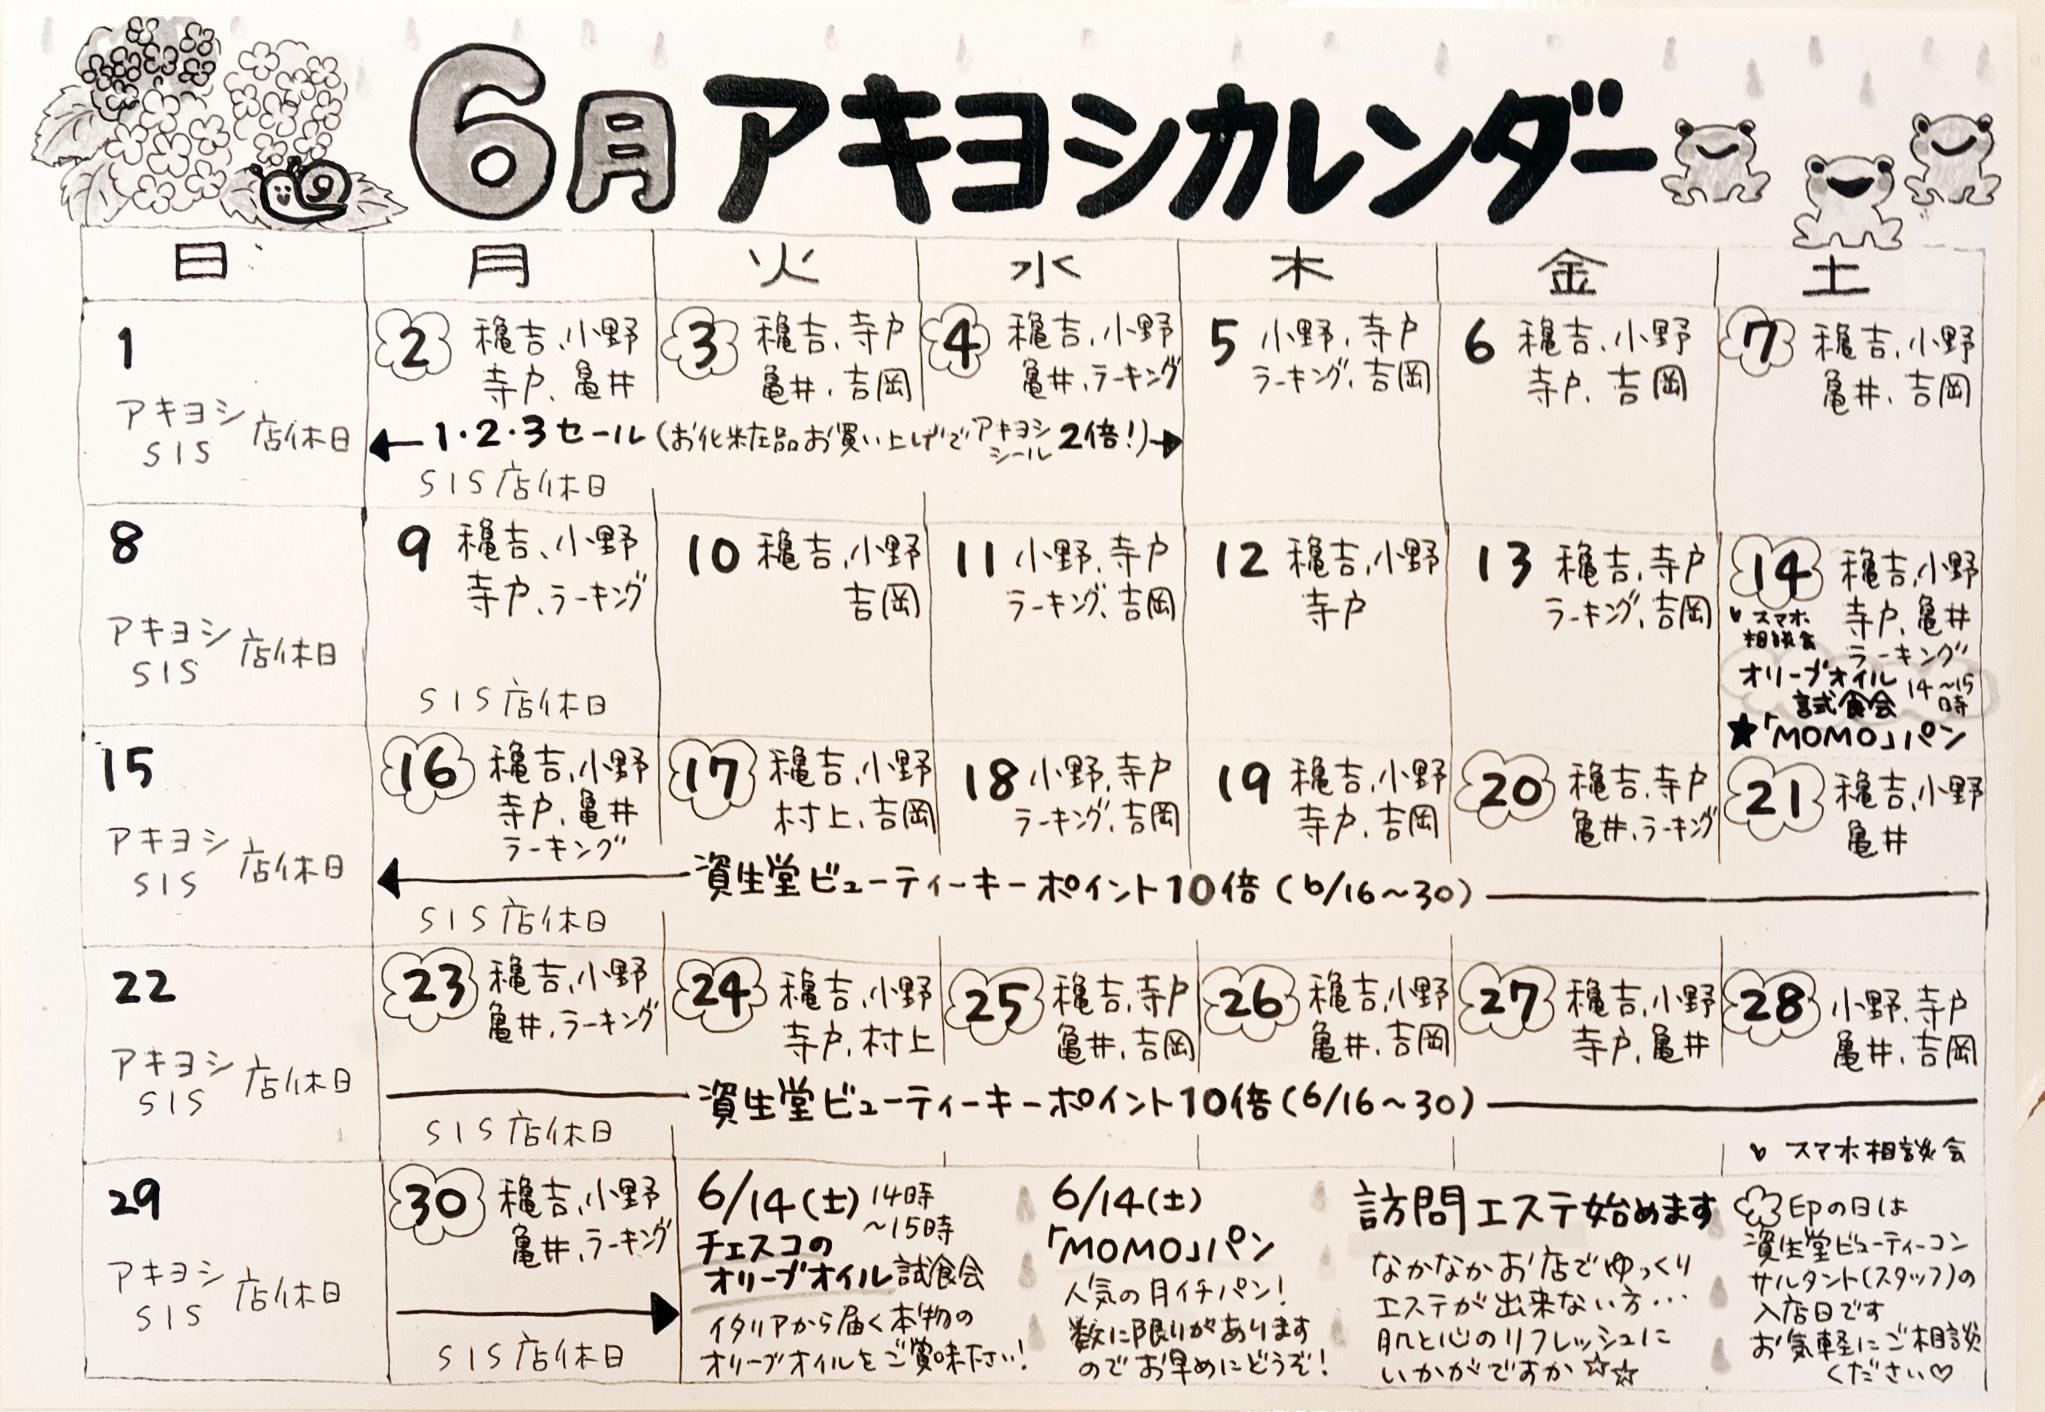 6月アキヨシカレンダー
日 月 火 水 木 金 土
1
アキヨシ
SIS
店休日
2 穐吉、小野
寺戸、亀井
3 穐吉、寺戸
亀井、吉岡
4 穐吉、小野
亀井、ラーキング
5 小野、寺戸
ラーキング、吉岡
6 穐吉、小野
寺戸、吉岡
7 穐吉、小野
亀井、吉岡
1・2・3セール(お化粧品お買い上げでアキヨシシール2倍!)
SIS店休日
8
アキヨシ
SIS
店休日
9 穐吉、小野
寺戸、ラーキング
SIS店休日
10 穐吉、小野
吉岡
11 小野、寺戸
ラーキング、吉岡
12 穐吉、小野
寺戸
13 穐吉、寺戸
ラーキング、吉岡
14 穐吉、小野
寺戸、亀井
ラーキング
スマホ
相談会
オリーブオイル
試食会
14~15時
★「MOMO」パン
15
アキヨシ
SIS
店休日
16 穐吉、小野
寺戸、亀井
ラーキング
17 穐吉、小野
村上、吉岡
18 小野、寺戸
ラーキング、吉岡
19 穐吉、小野
寺戸、吉岡
20 穐吉、寺戸
亀井、ラーキング
21 穐吉、小野
亀井
資生堂ビューティーキーポイント10倍(6/16~30)
SIS店休日
22
アキヨシ
SIS
店休日
23 穐吉、小野
亀井、ラーキング
24 穐吉、小野
寺戸、村上
25 穐吉、寺戸
亀井、吉岡
26 穐吉、小野
亀井、吉岡
27 穐吉、小野
寺戸、亀井
28 小野、寺戸
亀井、吉岡
資生堂ビューティーキーポイント10倍(6/16~30)
SIS店休日
スマホ相談会
29
アキヨシ
SIS
店休日
30 穐吉、小野
亀井、ラーキング
SIS店休日
6/14(土)14時
~15時
チェスコの
オリーブオイル試食会
イタリアから届く本物の
オリーブオイルをご賞味下さい!
6/14(土)
「MOMO」パン
人気の月イチパン!
数に限りがあります
のでお早めにどうぞ!
訪問エステ始めます
なかなかお店でゆっくり
エステが出来ない方…
肌と心のリフレッシュに
いかがですか☆☆
印の日は
資生堂ビューティーコン
サルタント(スタッフ)の
入店日です
お気軽にご相談
ください♡